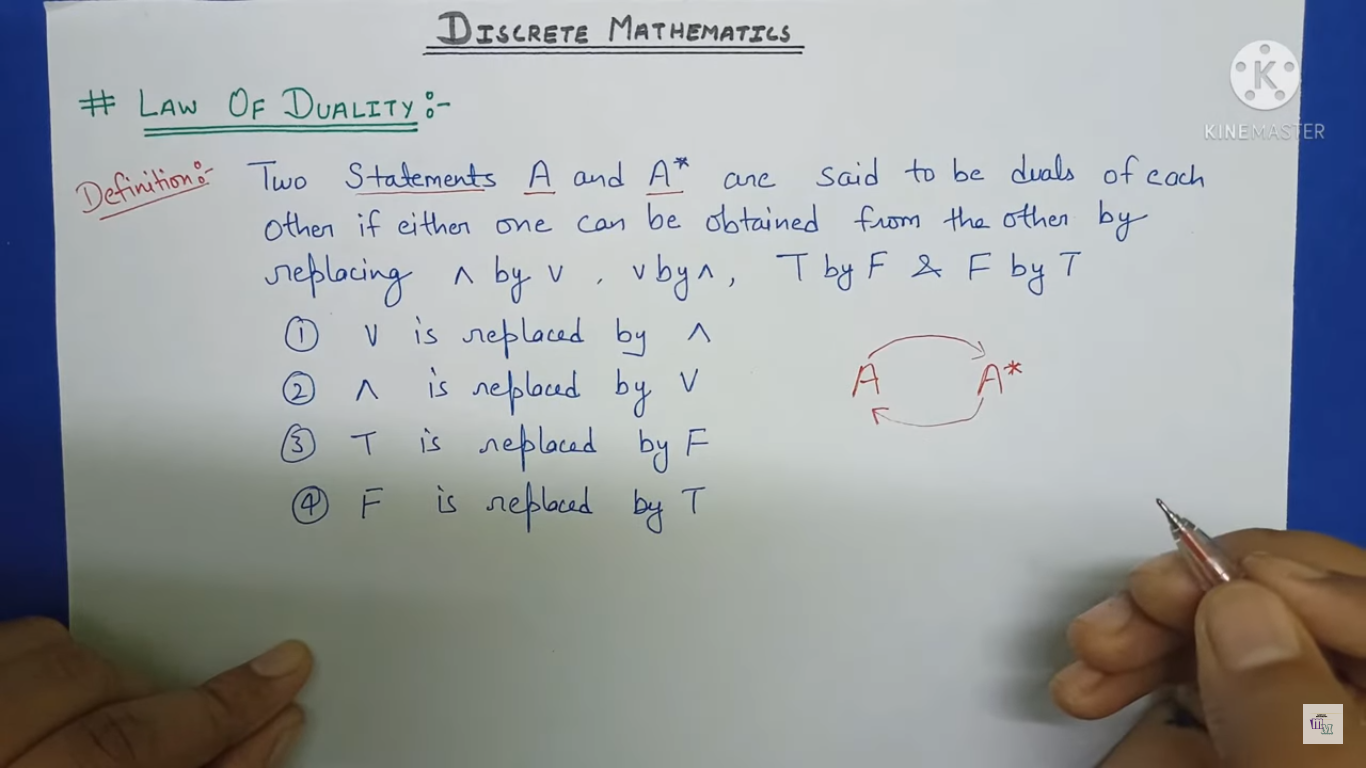 DISCRETE MATHEMATICS
K
KINEMASTER
# LAW OF DUALITY:-
Definition:- Two Statements A and A* are said to be duals of each
other if either one can be obtained from the other by
replacing ∧ by ∨ , ∨ by ∧, T by F & F by T
① ∨ is replaced by ∧
② ∧ is replaced by ∨
③ T is replaced by F
④ F is replaced by T
A A*